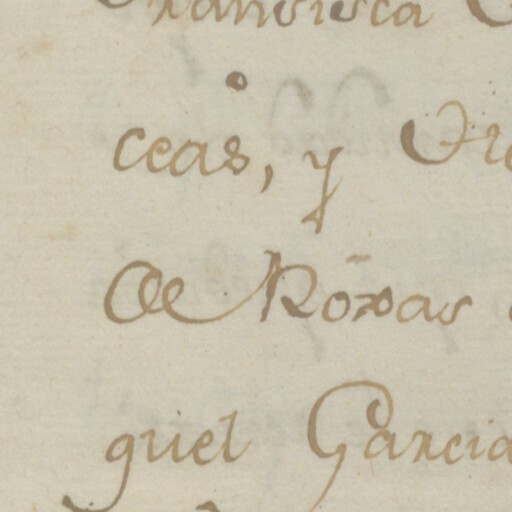 Fransisca
ceas, y
De Roxas
guel Garcia